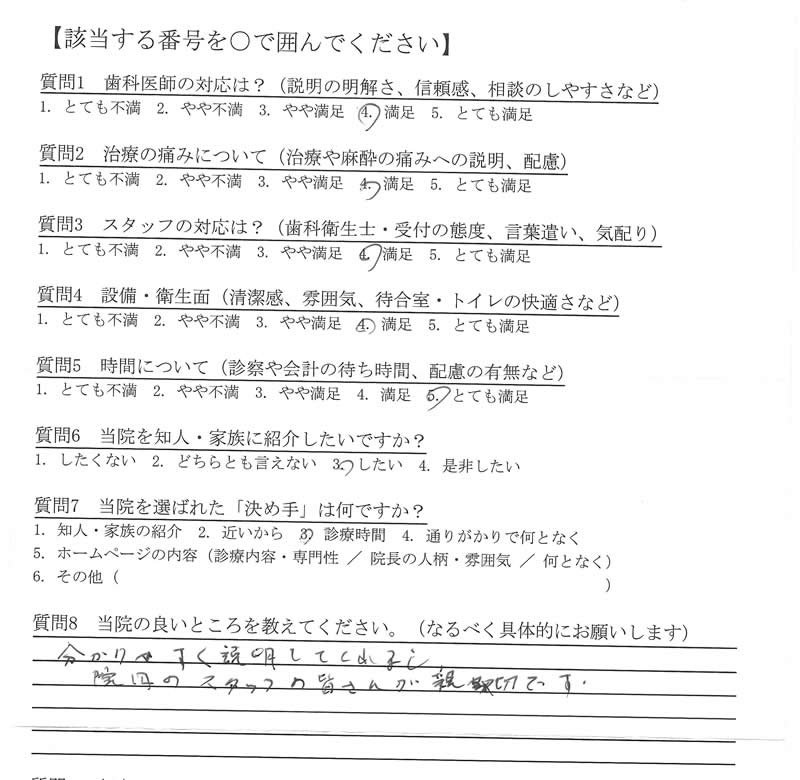 【該当する番号を○で囲んでください】
質問1　歯科医師の対応は？（説明の明解さ、信頼感、相談のしやすさなど）
1. とても不満 2. やや不満 3. やや満足 4. 満足 5. とても満足
質問2　治療の痛みについて（治療や麻酔の痛みへの説明、配慮）
1. とても不満 2. やや不満 3. やや満足 4. 満足 5. とても満足
質問3　スタッフの対応は？（歯科衛生士・受付の態度、言葉遣い、気配り）
1. とても不満 2. やや不満 3. やや満足 4. 満足 5. とても満足
質問4　設備・衛生面（清潔感、雰囲気、待合室・トイレの快適さなど）
1. とても不満 2. やや不満 3. やや満足 4. 満足 5. とても満足
質問5　時間について（診察や会計の待ち時間、配慮の有無など）
1. とても不満 2. やや不満 3. やや満足 4. 満足 5. とても満足
質問6　当院を知人・家族に紹介したいですか？
1. したくない 2. どちらとも言えない 3. したい 4. 是非したい
質問7　当院を選ばれた「決め手」は何ですか？
1. 知人・家族の紹介 2. 近いから 3. 診療時間 4. 通りがかりで何となく
5. ホームページの内容（診療内容・専門性 ／ 院長の人柄・雰囲気 ／ 何となく）
6. その他（　　　）
質問8　当院の良いところを教えてください。（なるべく具体的にお願いします）
分かりやすく説明してくれるし
院内のスタッフの皆さんが親切です.